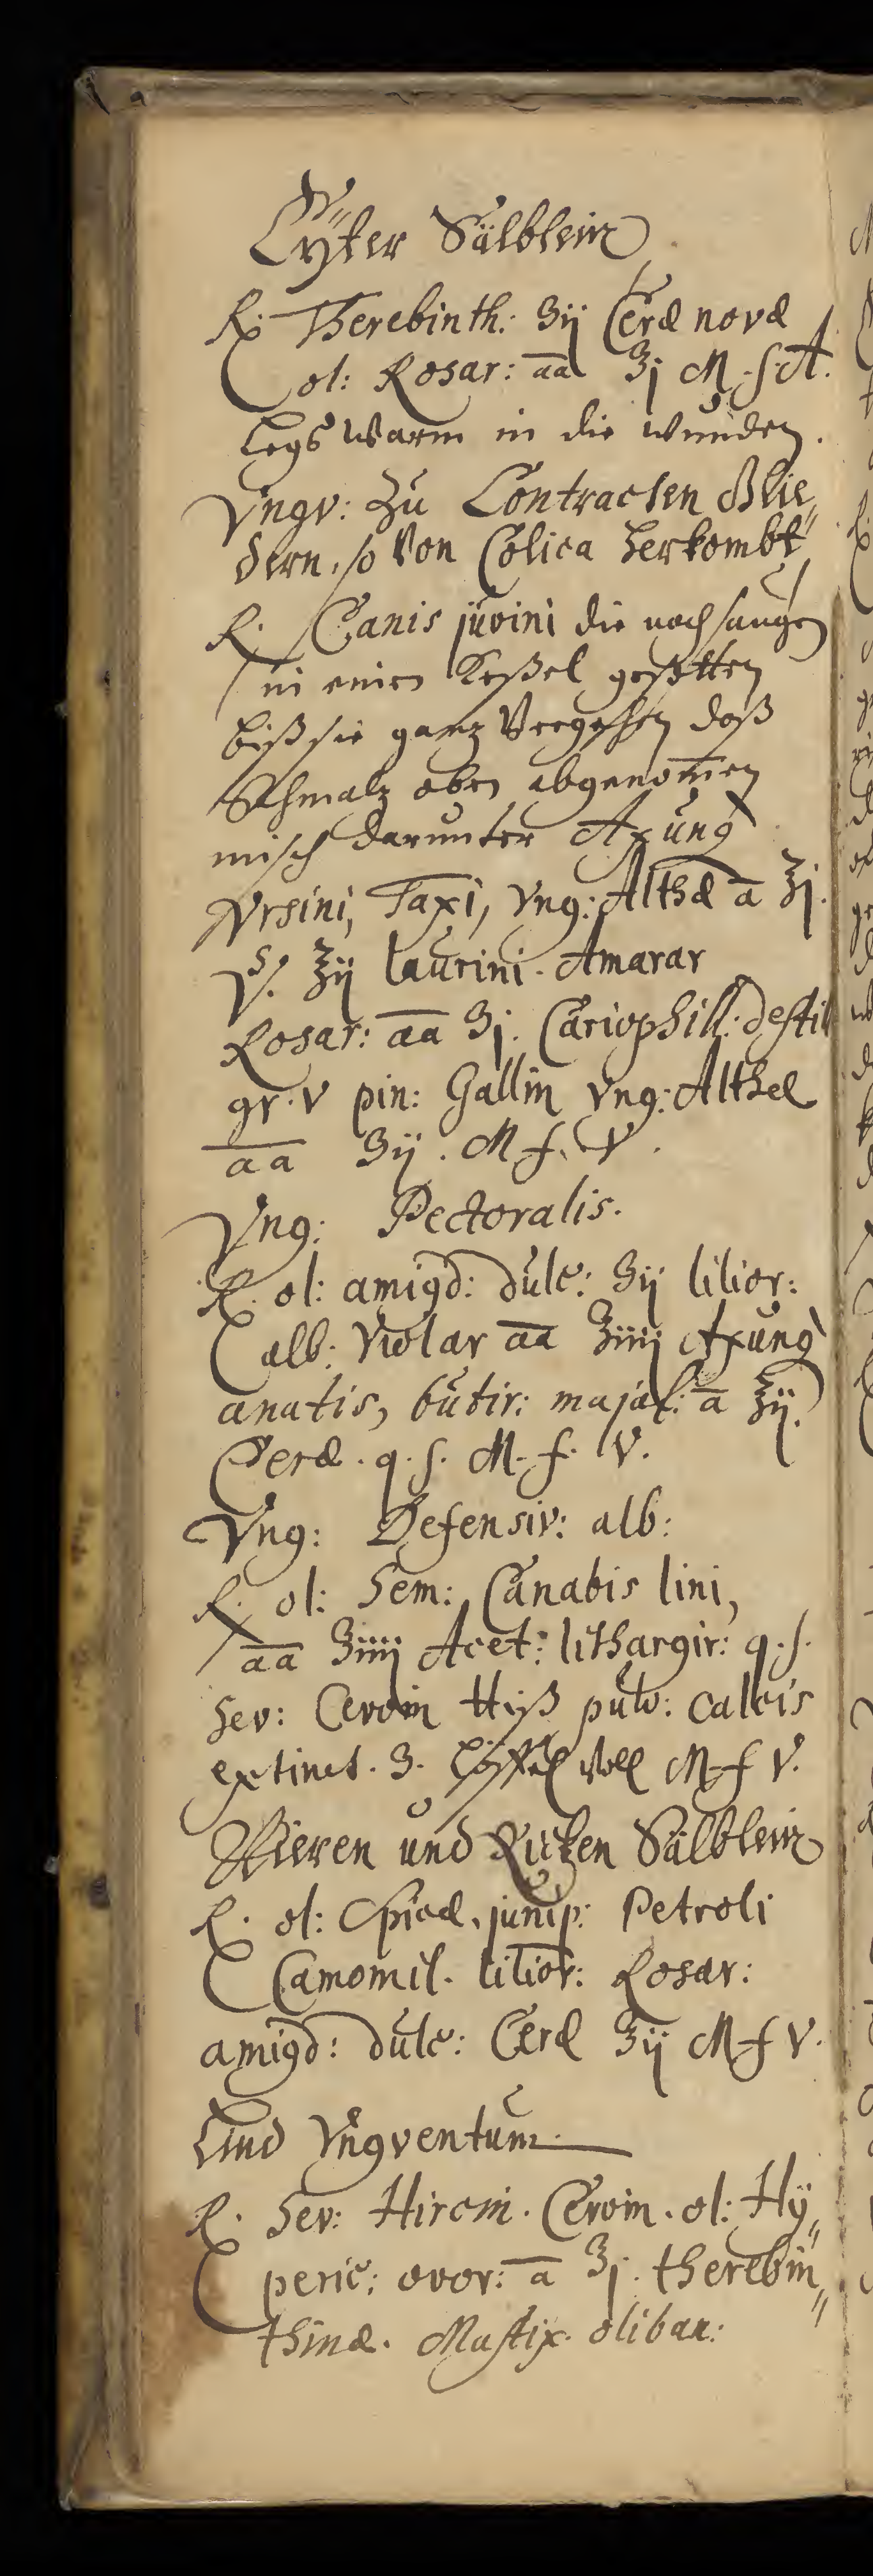 Eyter Sälblein
℞. Therebinth: ℥ij Ceræ novæ
ol: Rosar: aa ℥j M. f. A.
legs warm in die wunden.
Vngv: Zu Contracten Glie„
dern, so Von Colica herkombt
℞. Canis juvini die noch saugen
in einen Keßel gesotten
biß sie ganz Vergehen daß
Schmalz oben abgenom̄en
misch darunter Axung
Vrsini, Taxi, Vng: Althæ a ℥j.
℥ij laurini. Amarar
Rosar: aa ℥j. Cariophill: destil
gr. v pin: Gallin Vng: Althæ
aa ℥ij. M f. V.
Vng: Pectoralis.
℞. ol: amigd: dulc: ℥ij lilior:
alb: Violar aa ℥iiij Axung
anatis, butir: majal: a ℥ij.
Ceræ. q. s. M. f. V.
Vng: Defensiv: alb:
℞. ol: Sem: Canabis lini,
aa ℥iiij Acet: lithargir: q. s.
Sev: Cervin ℔iß pulv: calcis
extinct. 3. Löffel Voll M. f V.
Nieren und Rucken Sälblein
℞. ol: Spicæ, junip: Petroli
Camomil. lilior: Rosar:
amigd: dulc: Ceræ ℥ij M f V.
Lind Vngventum
℞. Sev: Hircin. Cervin. ol: Hÿ„
peric: ovor: a ℥j. therebin„
thinæ. Mastix. oliban: